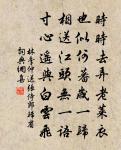 時時去弄老萊衣
也似何蕃歲一歸
相送江頭無一語
寸心遥與白雲飛
林季仲送張侍郎歸省
詞典網